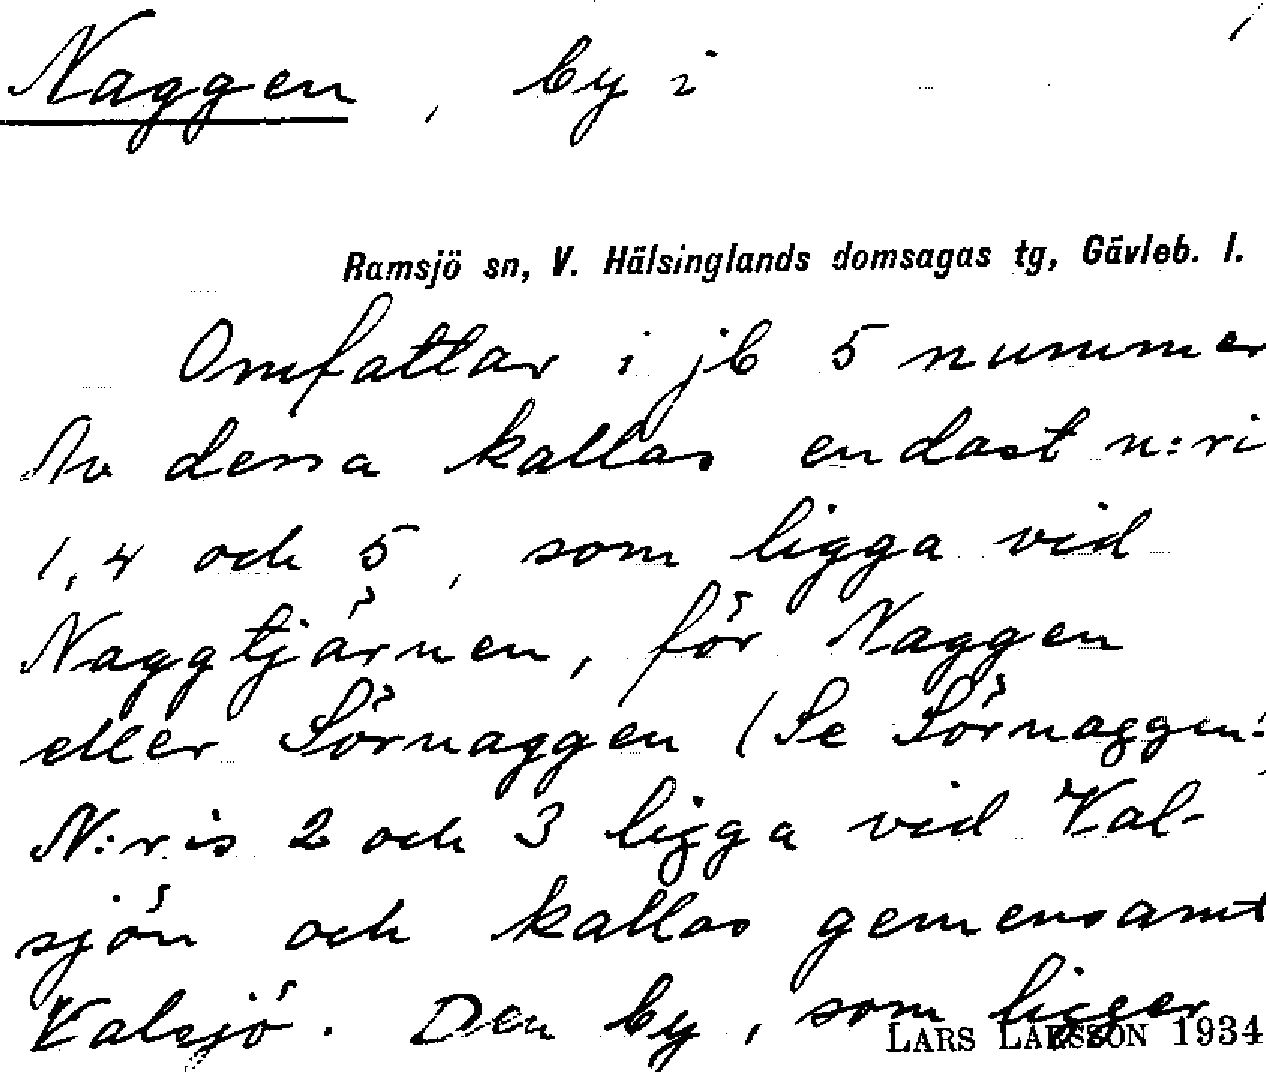 Naggen, by i
Ramsjö sn, V. Hälsinglands domsagas tg, Gävleb. l.
Omfattar i jb 5 nummer
Av dessa kallas endast n:ri
1, 4 och 5, som ligga vid
Naggtjärnen, för Naggen
eller Sörnaggen (Se Sörnaggen:
N:ris 2 och 3 ligga vid Val-
sjön och kallas gemensamt
Valsjö. Den by, som ligger
LARS LARSSON 1934